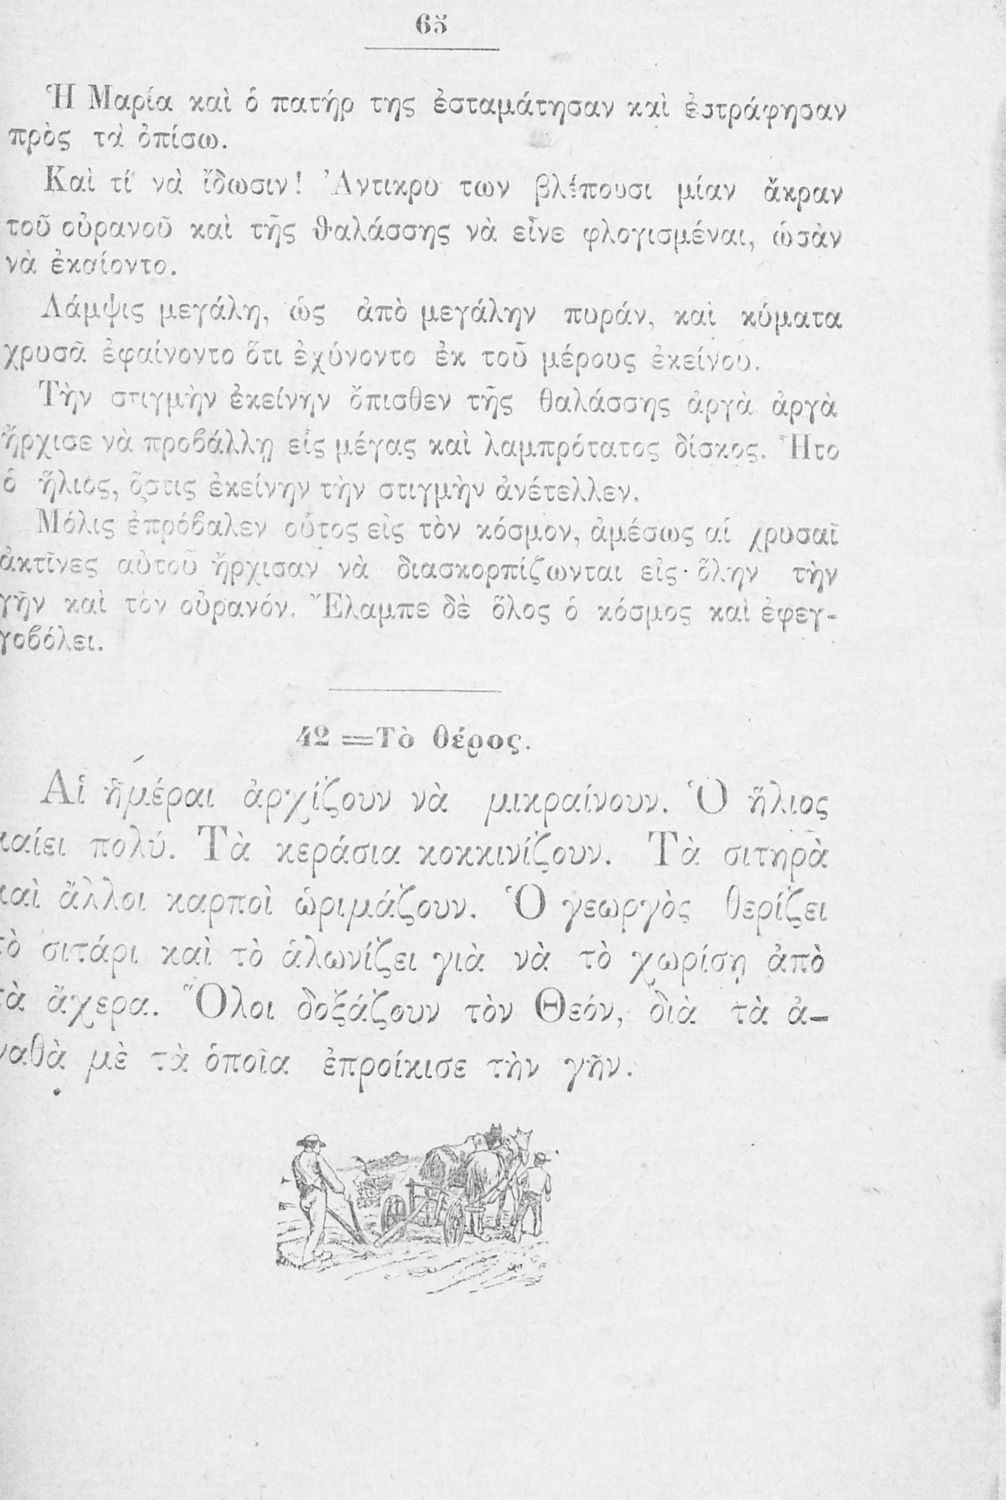 65
Ἡ Μαρία καὶ ὁ πατήρ της ἐσταμάτησαν καὶ ἐστράφησαν
πρὸς τὰ ὀπίσω.
Καὶ τί νὰ ἴδωσιν! Ἀντικρυ των βλέπουσι μίαν ἄκραν
τοῦ οὐρανοῦ καὶ τῆς θαλάσσης νὰ εἶνε φλογισμέναι, ὡσὰν
νὰ ἐκαίοντο.
Λάμψις μεγάλη, ὡς ἀπὸ μεγάλην πυράν, καὶ κύματα
χρυσᾶ ἐφαίνοντο ὅτι ἐχύνοντο ἐκ τοῦ μέρους ἐκείνου.
Τὴν στιγμὴν ἐκείνην ὄπισθεν τῆς θαλάσσης ἀργὰ ἀργὰ
ἤρχισε νὰ προβάλλῃ εἷς μέγας καὶ λαμπρότατος δίσκος. Ἦτο
ὁ ἥλιος, ὅστις ἐκείνην τὴν στιγμὴν ἀνέτελλεν.
Μόλις ἐπρόβαλεν οὗτος εἰς τὸν κόσμον, ἀμέσως αἱ χρυσαῖ
ἀκτῖνες αὐτοῦ ἤρχισαν νὰ διασκορπίζωνται εἰς ὅλην τὴν
γῆν καὶ τὸν οὐρανόν. Ἔλαμπε δὲ ὅλος ὁ κόσμος καὶ ἐφεγ-
γοβόλει.
42 =Τὸ θέρος.
Αἱ ἡμέραι ἀρχίζουν νὰ μικραίνουν. Ὁ ἥλιος
καίει πολύ. Τὰ κεράσια κοκκινίζουν. Τὰ σιτηρὰ
καὶ ἄλλοι καρποὶ ὡριμάζουν. Ὁ γεωργὸς θερίζει
τὸ σιτάρι καὶ τὸ ἁλωνίζει γιὰ νὰ τὸ χωρίσῃ ἀπὸ
τὰ ἄχερα. Ὅλοι δοξάζουν τὸν Θεόν, διὰ τὰ ἀ-
γαθὰ μὲ τὰ ὁποῖα ἐπροίκισε τὴν γῆν.